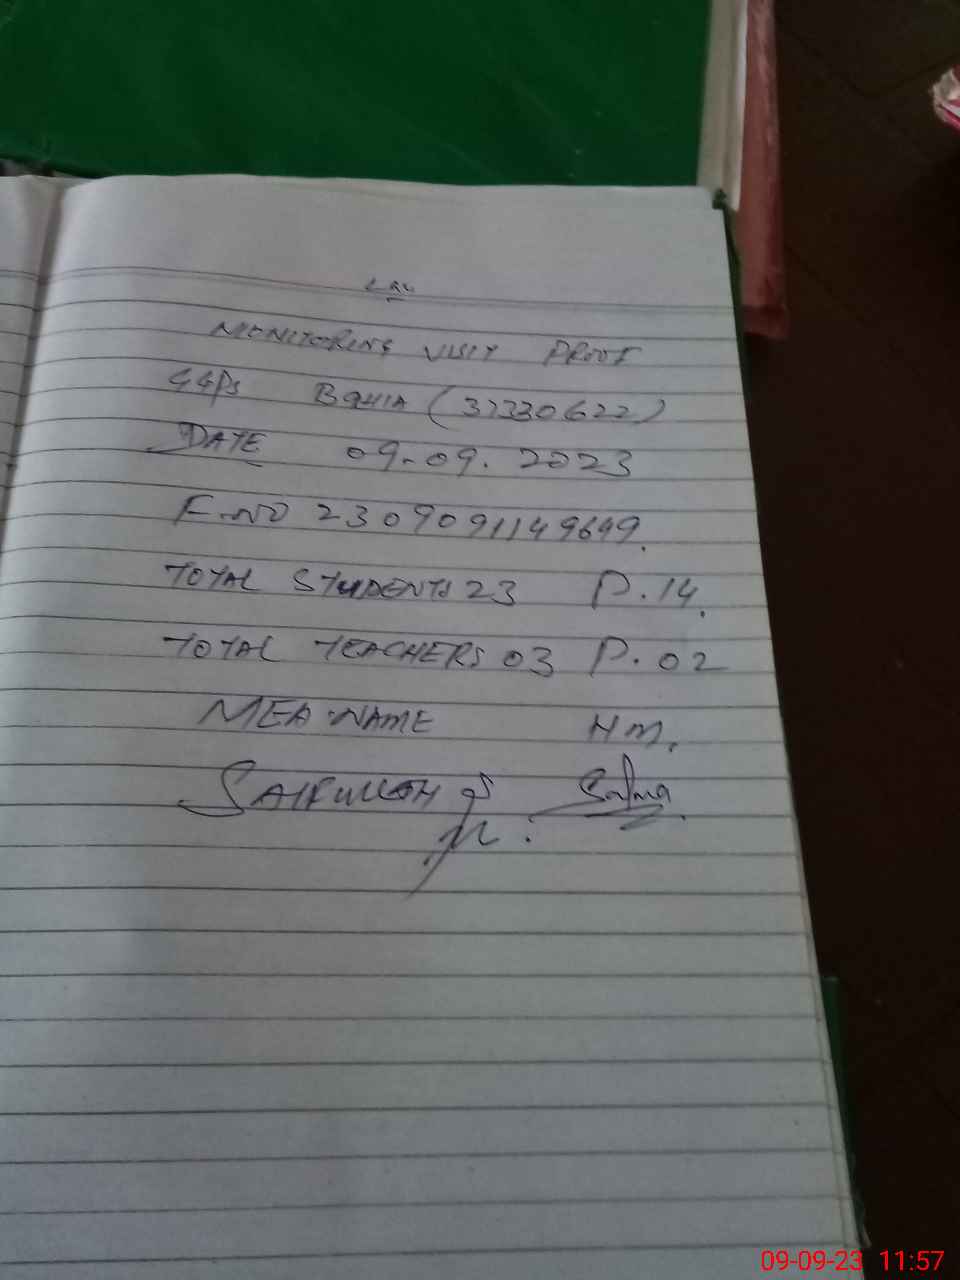 MONITORING VISIT PROOF
GGPS BAHIA (37330622)
DATE 09.09.2023
F.NO 2309091149649.
TOTAL STUDENTS 23 P.14.
TOTAL TEACHERS 03 P.02
MEA.NAME H M.
SAIFULLAH Salma
09-09-23 11:57